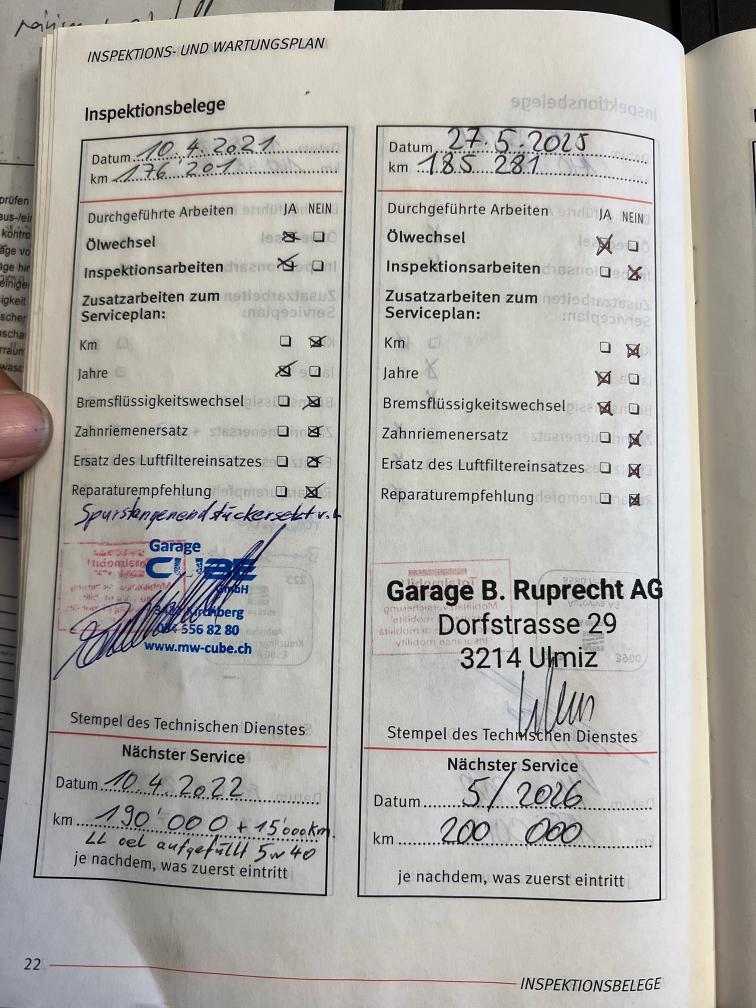 INSPEKTIONS- UND WARTUNGSPLAN
Inspektionsbelege
Datum 10.4.2021
km 176 201
Durchgeführte Arbeiten JA NEIN
Ölwechsel
Inspektionsarbeiten
Zusatzarbeiten zum
Serviceplan:
Km
Jahre
Bremsflüssigkeitswechsel
Zahnriemenersatz
Ersatz des Luftfiltereinsatzes
Reparaturempfehlung
Spurstangenendstückersetzt v.L
Garage
CUBE
GmbH
Kirchberg
556 82 80
www.mw-cube.ch
Stempel des Technischen Dienstes
Nächster Service
Datum 10.4.2022
km 190'000 + 15'000km.
LL oel aufgefüllt 5w40
je nachdem, was zuerst eintritt
Datum 27.5.2025
km 185 281
Durchgeführte Arbeiten JA NEIN
Ölwechsel
Inspektionsarbeiten
Zusatzarbeiten zum
Serviceplan:
Km
Jahre
Bremsflüssigkeitswechsel
Zahnriemenersatz
Ersatz des Luftfiltereinsatzes
Reparaturempfehlung
Garage B. Ruprecht AG
Dorfstrasse 29
3214 Ulmiz
Stempel des Technischen Dienstes
Nächster Service
Datum 5/2026
km 200 000
je nachdem, was zuerst eintritt
22
INSPEKTIONSBELEGE